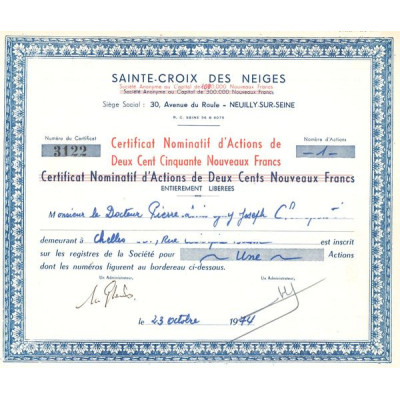 SAINTE-CROIX DES NEIGES
Société Anonyme au Capital de 000 Nouveaux Francs
Société Anonyme au Capital de 300.000 Nouveaux Francs
Siège Social : 30, Avenue du Roule - NEUILLY-SUR-SEINE
R. C. SEINE
Numéro du Certificat
Nombre d'Actions
3122
Certificat Nominatif d'Actions de
-1-
Deux Cent Cinquante Nouveaux Francs
Certificat Nominatif d'Actions de Deux Cents Nouveaux Francs
ENTIEREMENT LIBEREES
Monsieur le Docteur Pierre Joseph
demeurant à Chelles Rue est inscrit
sur les registres de la Société pour Une Actions
dont les numéros figurent au bordereau ci-dessous.
Un Administrateur,
Un Administrateur,
le 23 octobre 1974